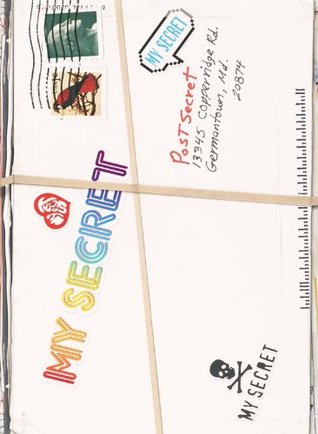 MY SECRET
PostSecret
13345 Copperridge Rd.
Germantown, Md.
20874
MY SECRET
MY SECRET